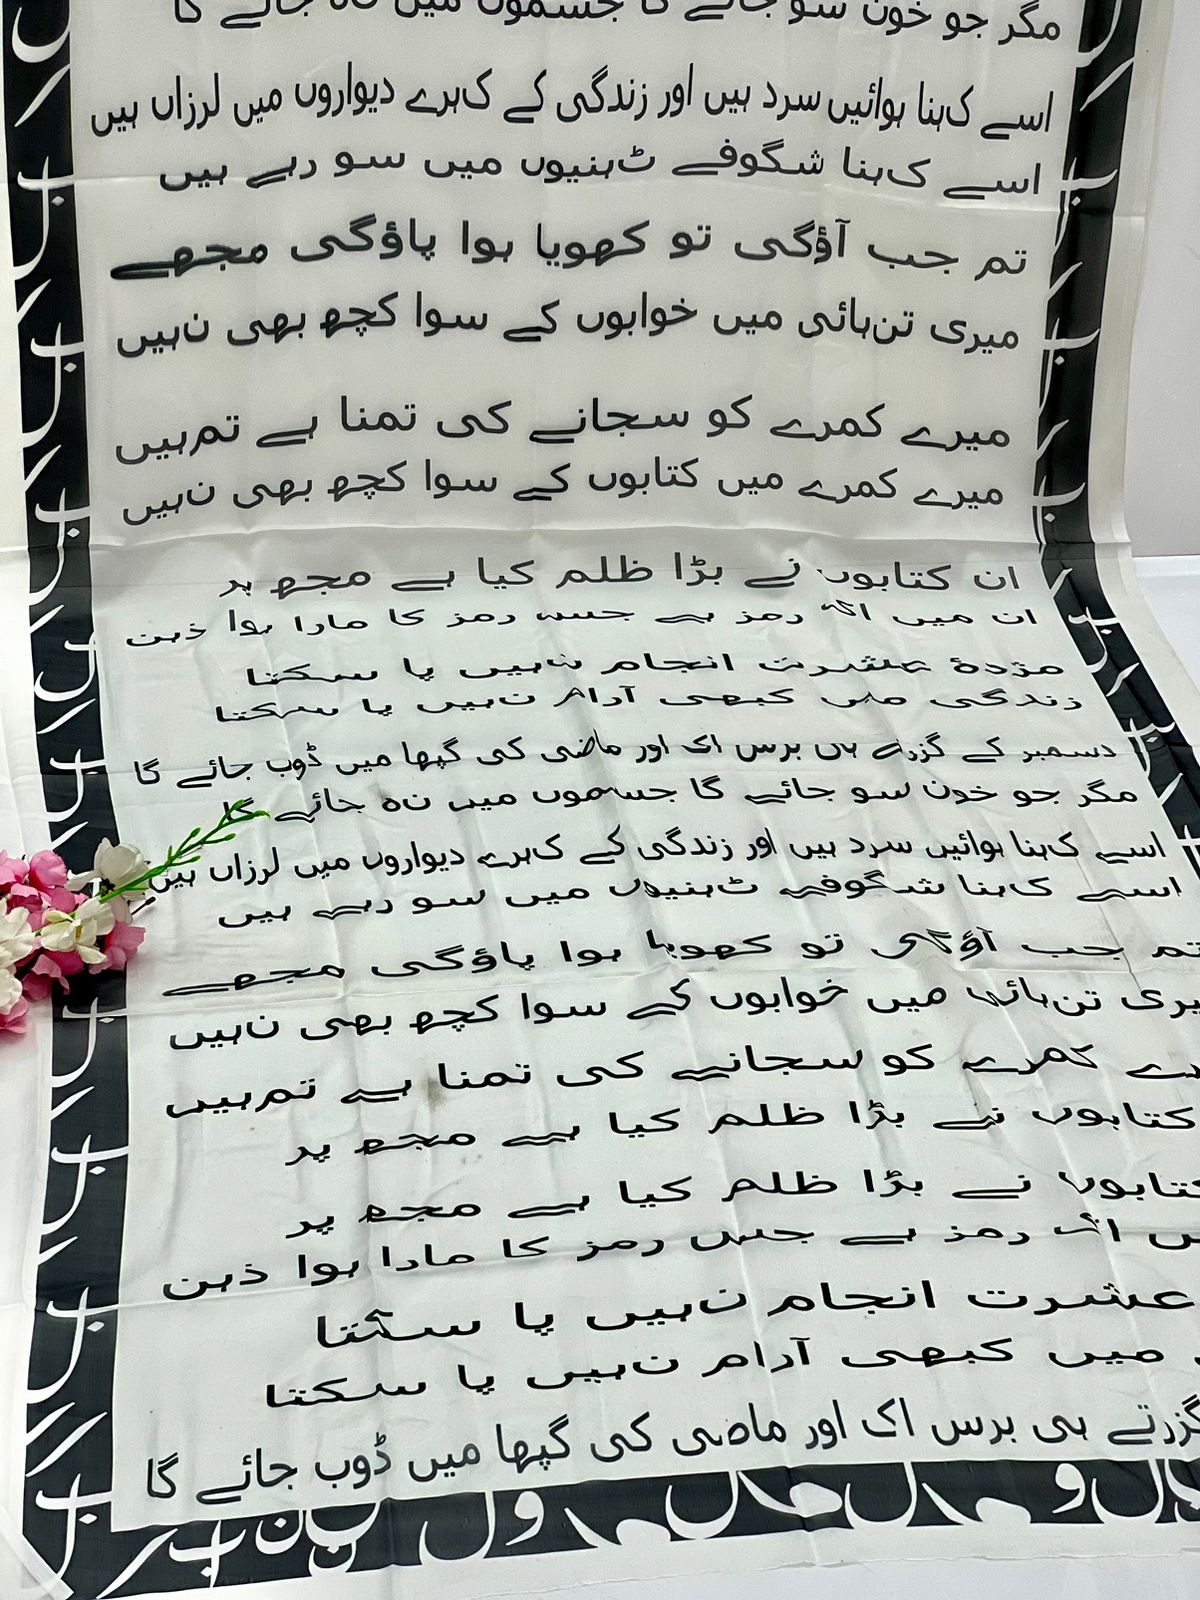 مگر جو خون سو جائے گا جسموں میں نہ جائے گا
اسے کہنا ہوائیں سرد ہیں اور زندگی کے کہرے دیواروں میں لرزاں ہیں
اسے کہنا شگوفے ٹہنیوں میں سو رہے ہیں
تم جب آؤگی تو کھویا ہوا پاؤگی مجھے
میری تنہائی میں خوابوں کے سوا کچھ بھی نہیں
میرے کمرے کو سجانے کی تمنا ہے تمہیں
میرے کمرے میں کتابوں کے سوا کچھ بھی نہیں
ان کتابوں نے بڑا ظلم کیا ہے مجھ پر
ان میں اک رمز ہے جس رمز کا مارا ہوا ذہن
مژدۂ عشرت انجام نہیں پا سکتا
زندگی میں کبھی آرام نہیں پا سکتا
دسمبر کے گزرتے ہی برس اک اور ماضی کی گپھا میں ڈوب جائے گا
مگر جو خون سو جائے گا جسموں میں نہ جائے گا
اسے کہنا ہوائیں سرد ہیں اور زندگی کے کہرے دیواروں میں لرزاں ہیں
اسے کہنا شگوفے ٹہنیوں میں سو رہے ہیں
تم جب آؤگی تو کھویا ہوا پاؤگی مجھے
تنہائی میں خوابوں کے سوا کچھ بھی نہیں
کمرے کو سجانے کی تمنا ہے تمہیں
کتابوں نے بڑا ظلم کیا ہے مجھ پر
کتابوں نے بڑا ظلم کیا ہے مجھ پر
اک رمز ہے جس رمز کا مارا ہوا ذہن
عشرت انجام نہیں پا سکتا
میں کبھی آرام نہیں پا سکتا
گزرتے ہی برس اک اور ماضی کی گپھا میں ڈوب جائے گا